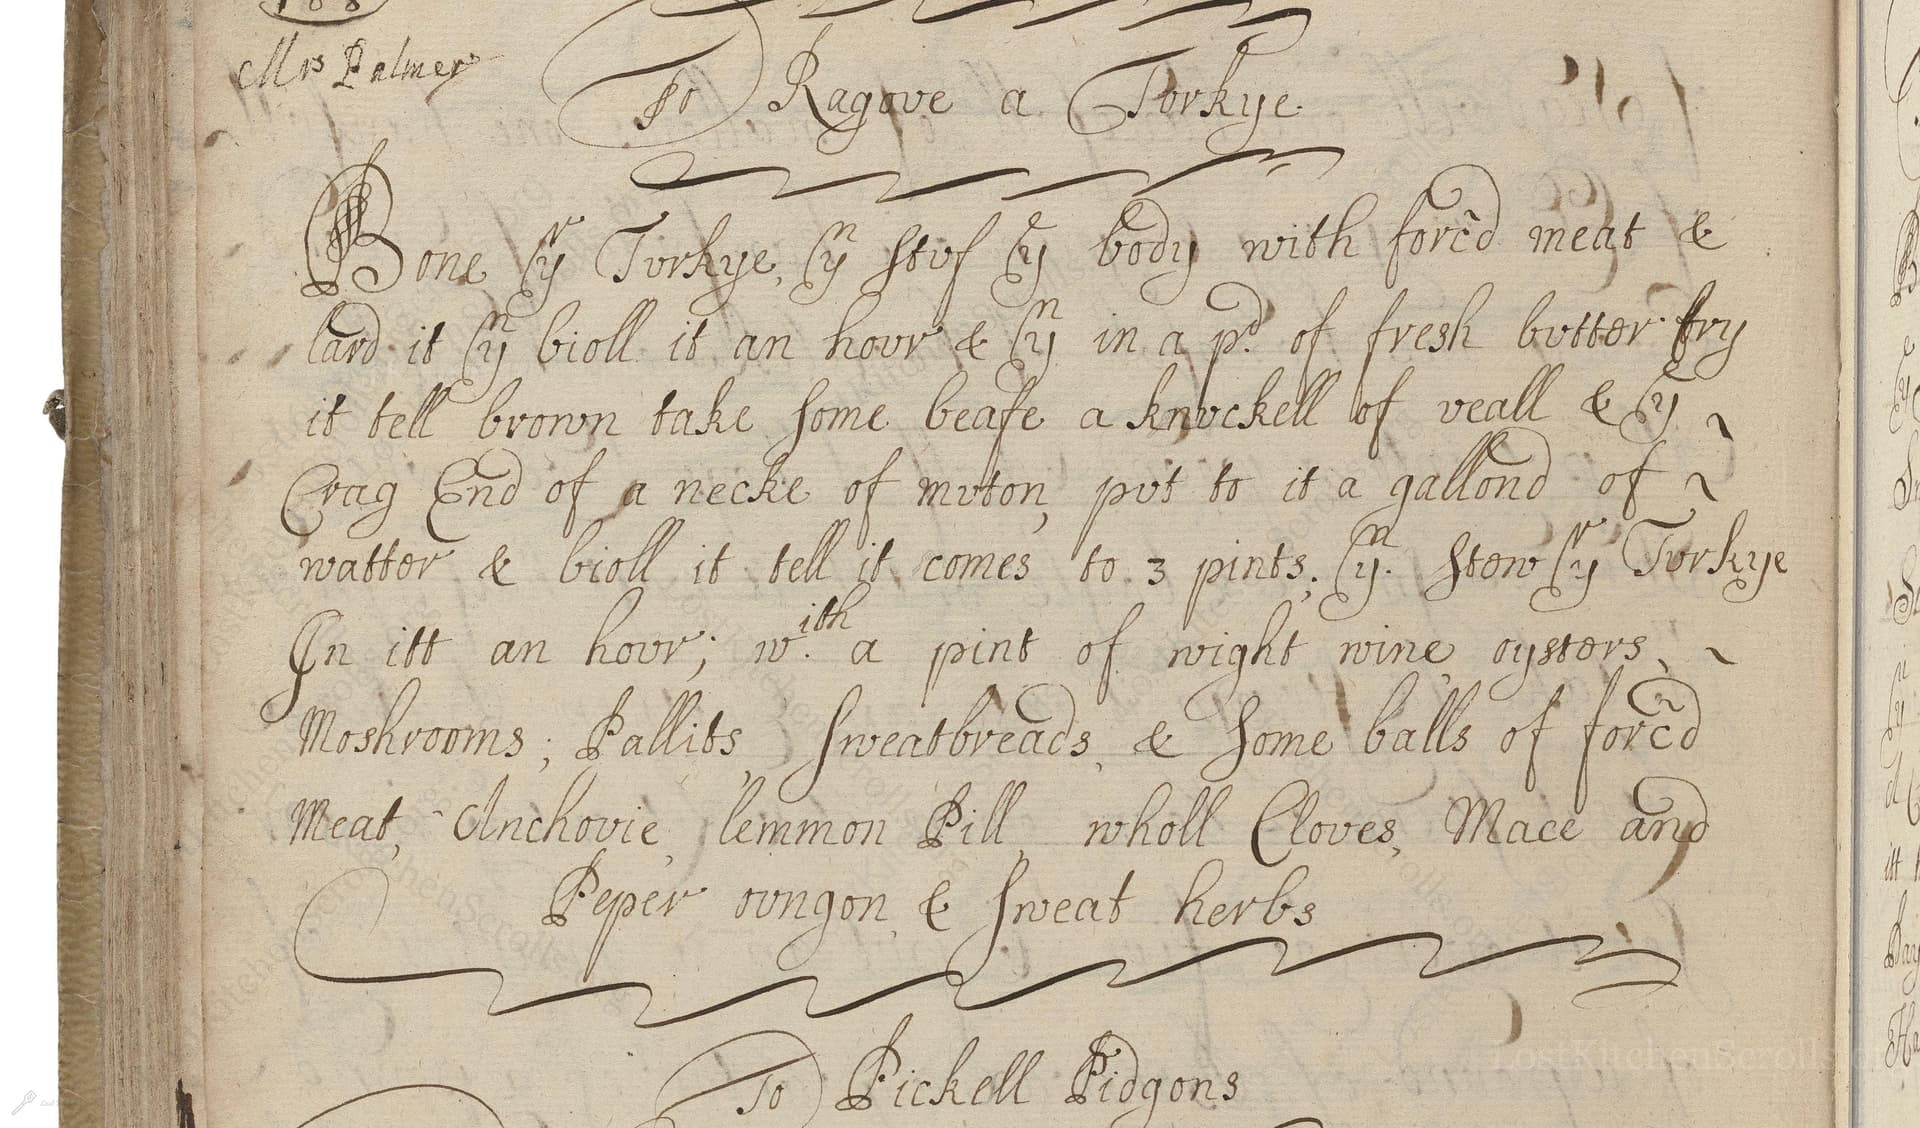 188
Mrs Palmer
To Ragove a Torkye.
Bone yr Tvrkye, yn stvf ye body with forc̃d meat &
lard it yn bioll it an hovr & yn in a pd. of fresh bvtter fry
it tell brown take some beafe a knvckell of veall & ye ~
Crag End of a necke of mvton, pvt to it a gallond of ~
watter & bioll it tell it comes to 3 pints; yn. stew yr Tvrkye
In itt an hovr; w.ith a pint of wight wine, oysters, ~
Moshrooms; Pallits, sweatbreads, & some balls of forc̃d
Meat, Anchovie, lemmon Pill, wholl Cloves, Mace and
Peper ovngon, & sweat herbs
To Pickell Pidgons
LostKitchenScrolls